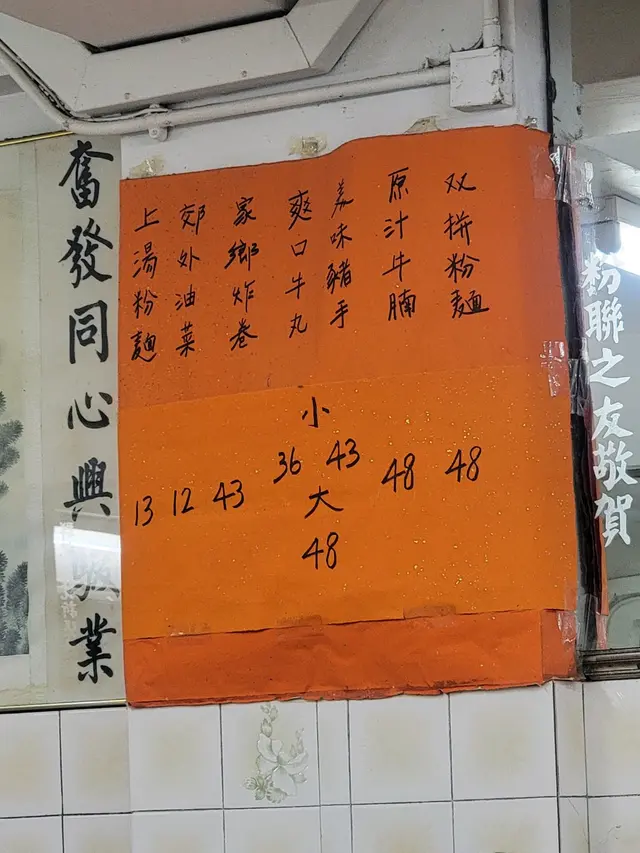 粉聯之友敬賀
双拼粉麵
原汁牛腩
美味豬手
爽口牛丸
家鄉炸卷
郊外油菜
上湯粉麵
小
13 12 43 36 43 48 48
大
48
奮發同心興業